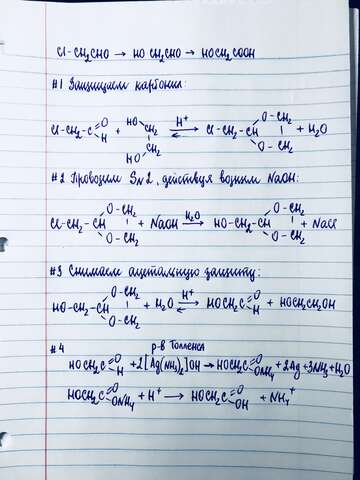 Cl-CH₂CHO → HOCH₂CHO → HOCH₂COOH
#1 Защищаем карбонил:
Cl-CH₂-C(=O)H + HO-CH₂-CH₂-HO ⇌ (H⁺) Cl-CH₂-CH(O-CH₂)(O-CH₂) + H₂O
#2 Проводим SN2, действуя водным NaOH:
Cl-CH₂-CH(O-CH₂)(O-CH₂) + NaOH → (H₂O) HO-CH₂-CH(O-CH₂)(O-CH₂) + NaCl
#3 Снимаем ацетальную защиту:
HO-CH₂-CH(O-CH₂)(O-CH₂) + H₂O ⇌ (H⁺) HOCH₂C(=O)H + HOCH₂CH₂OH
#4 р-в Толленса
HOCH₂C(=O)H + 2[Ag(NH₃)₂]OH → HOCH₂C(=O)ONH₄ + 2Ag + 3NH₃ + H₂O
HOCH₂C(=O)ONH₄ + H⁺ → HOCH₂C(=O)OH + NH₄⁺